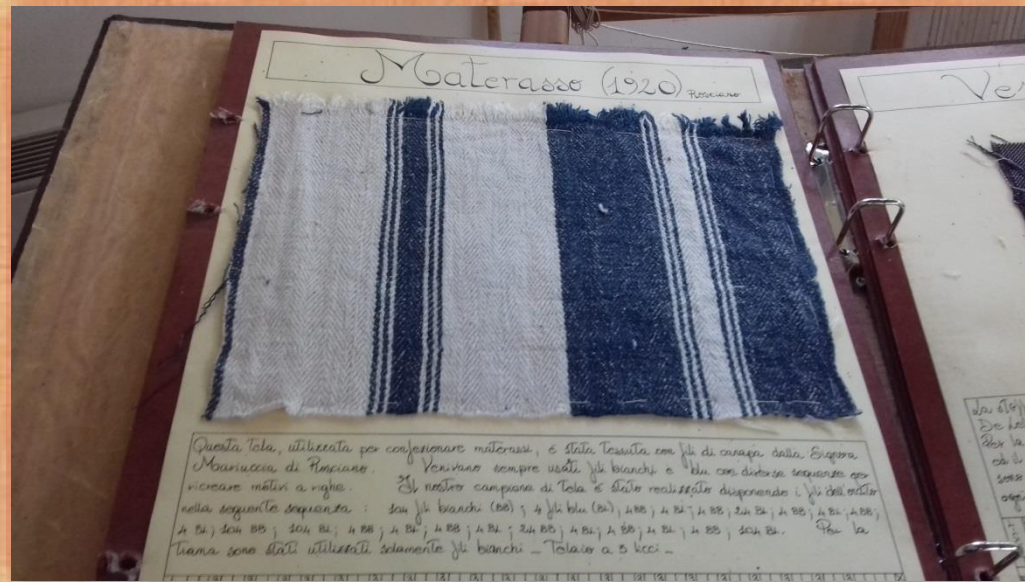 Materasso (1920) Rosciano
Questa tela, utilizzata per confezionare materassi, è stata tessuta con fili di canapa dalla Signora
Mariuccia di Rosciano. Venivano sempre usati fili bianchi e blu con diverse sequenze per
ricreare motivi a righe. Il nostro campione di tela è stato realizzato disponendo i fili dell'ordito
nella seguente sequenza : 104 fili bianchi (BB) ; 4 fili blu (BL) ; 4BB ; 4 BL ; 4 BB ; 24 BL ; 4 BB ; 4 BL ; 4BB ;
4 BL ; 104 BB ; 104 BL ; 4 BB ; 4 BL ; 4 BB ; 4 BL ; 24 BB ; 4 BL ; 4 BB ; 4 BL ; 4 BB ; 104 BL. Per la
trama sono stati utilizzati solamente fili bianchi _ Telaio a 5 licci _
Ve
La stof
De
Per la
ed il